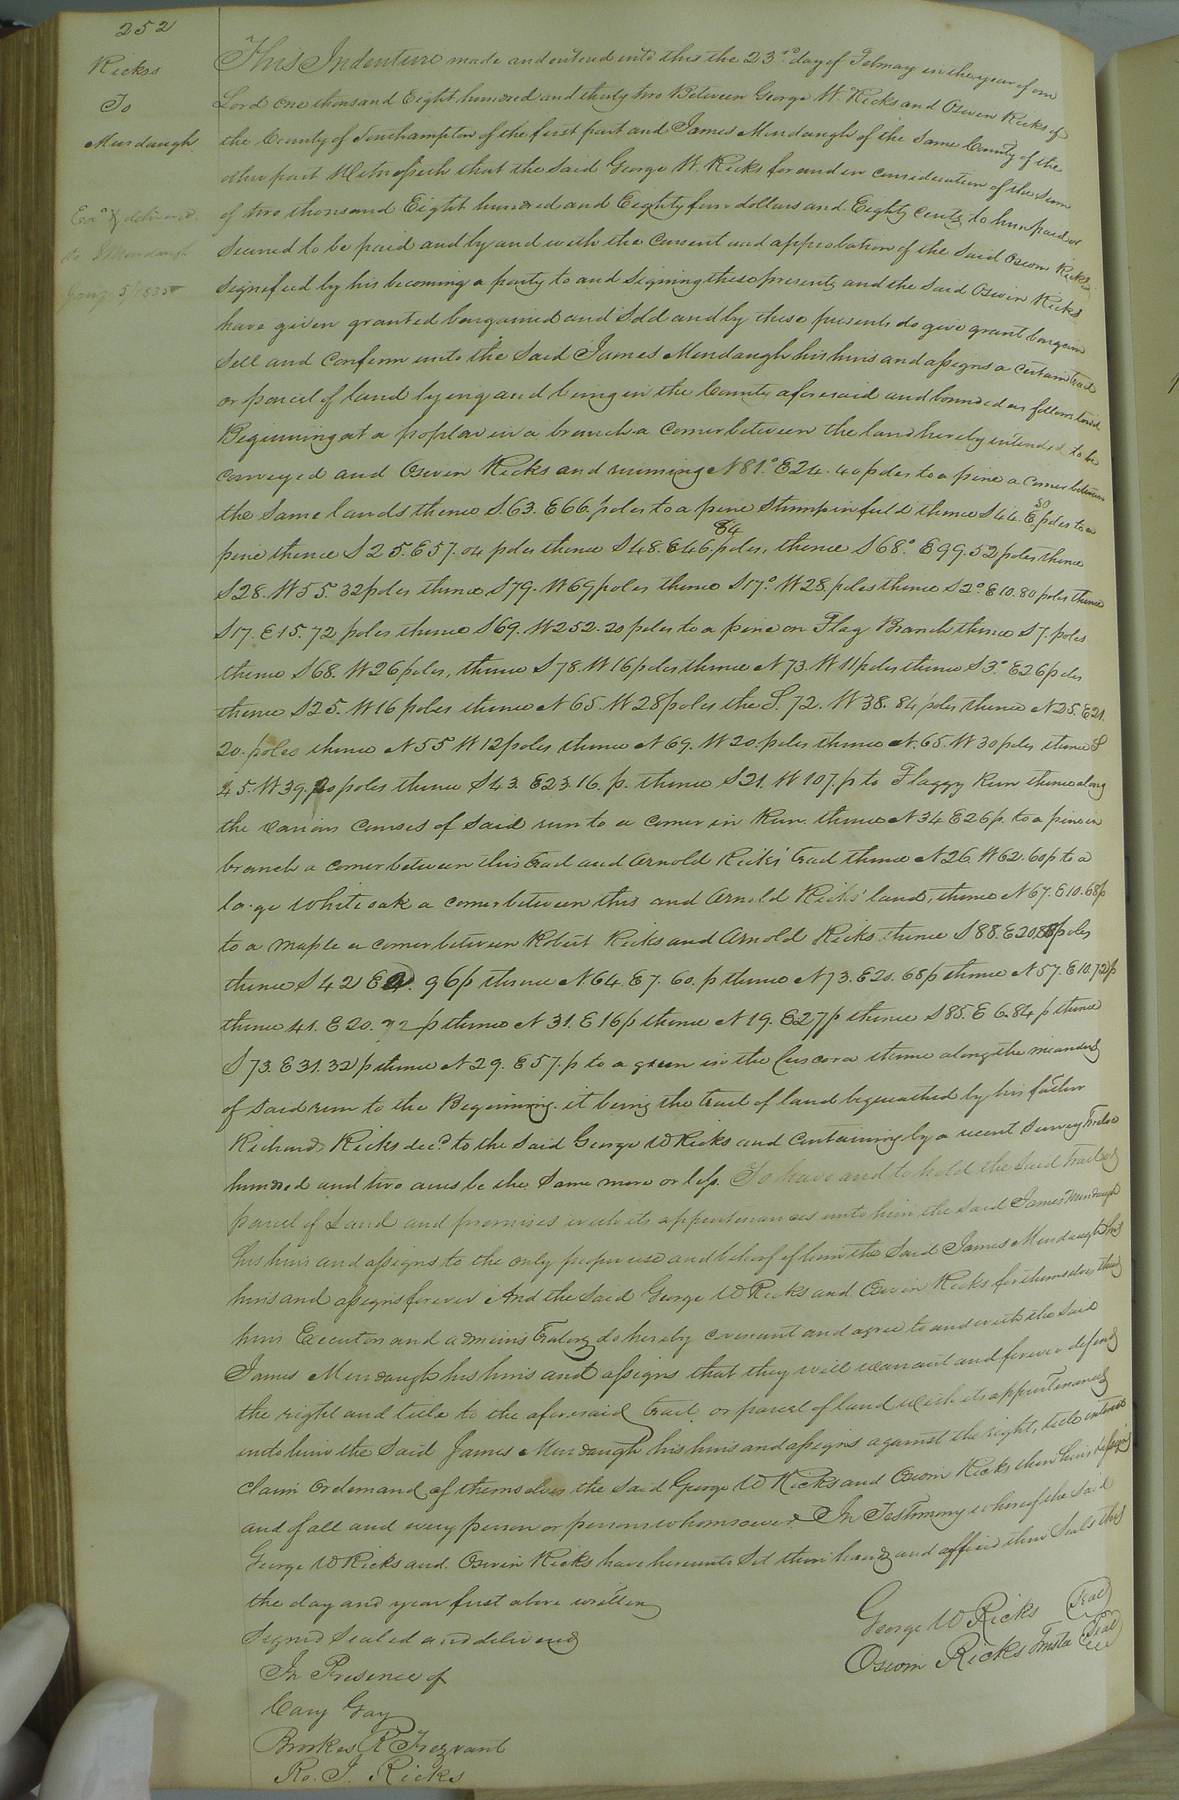 252
Ricks
To
Murdaugh
Exd & delivered
to J Murdaugh
Jany 5/1835
This Indenture made and entered into this the 23rd day of Febuary in the year of our
Lord one thousand Eight hundred and thirty two Between George W. Ricks and Oswin Ricks of
the County of Southampton of the first part and James Murdaugh of the Same County of the
other part Witnesseth that the said George W. Ricks for and in consideration of the Sum
of two thousand Eight hundred and Eighty four dollars and Eighty Cents to him paid or
Secured to be paid and by and with the Consent and approbation of the Said Oswin Ricks
Signefied by his becoming a party to and Signing these presents and the Said Oswin Ricks
have given granted bargained and Sold and by these presents do give grant bargain
Sell and Confirm unto the Said James Murdaugh his heirs and assigns a Certain tract
or parcel of land lying and being in the County aforesaid and bounded as follows towit
Beginning at a poplar in a branch a Corner between the land hereby intended to be
Conveyed and Oswin Ricks and running N 81.° E 24. 40 poles to a pine a Corner between
the Same lands thence S. 63. E 66. poles to a pine Stump in field thence S 44. E. 50 poles to a
pine thence S 25. E 57. 04 poles thence S 48. E 46. 84 poles, thence S 68.° E 99. 52 poles thence
S 28. W 55. 32 poles thence S 79. W 69 poles thence S 17.° W 28. poles thence S 2.° E 10. 80 poles thence
S 17. E 15. 72 poles thence S 69. W 252. 20 poles to a pine on Flag Branch thence S 7. poles
thence S 68. W 26 poles, thence S 78. W 16 poles thence N 73. W 11 poles thence S 3.° E 26 poles
thence S 25. W 16 poles thence N 65. W 28 poles the S. 72. W 38. 84 poles thence N 25. E 21.
20. poles thence N 55 W 12 poles thence N 69. W 20. poles thence N. 65. W 30 poles thence S
45. W 39. 20 poles thence S 43. E 23. 16. p. thence S 21. W 107. p to Flaggy Run thence along
the various Courses of Said run to a Corner in Run. thence N 34 E 26 p. to a pine in
branch a corner between this tract and Arnold Ricks' tract thence N 26. W 62. 60 p to a
large white oak a corner between this and Arnold Ricks' land, thence N 67. E 10. 68 p
to a maple a corner between Robert Ricks and Arnold Ricks thence S 88. E 20. 88 poles
thence S 42 E 2. 96 p thence N. 64. E 7. 60. p thence N 73. E 20. 68 p thence N 57. E 10. 72 p
thence 41. E 20. 72 p thence N 31. E 16 p thence N 19. E 27 p thence S 85. E 6. 84 p thence
S 73. E 31. 32 p thence N 29. E 57. p to a gum in the thence along the meanders
of said run to the Beginning. it being the tract of land bequeathed by his father
Richard Ricks decd. to the Said George W Ricks and Containing by a recent Survey twelve
hundred and two acres be the Same more or less. To have and to hold the Said tract or
parcel of Land and premises with its appurtenances unto him the Said James Murdaugh
his heirs and assigns to the only proper use and behoof of him the Said James Murdaugh his
heirs and assigns forever And the Said George W Ricks and Oswin Ricks for themselves their
heirs Executors and administrators do hereby covenant and agree to and with the Said
James Murdaugh his heirs and assigns that they will warrant and forever defend
the right and title to the aforesaid tract or parcel of land with its appurtenances
unto him the Said James Murdaugh his heirs and assigns against the right, title interest
claim or demand of themselves the Said George W Ricks and Oswin Ricks their heirs & assigns
and of all and every person or persons whomsoever. In Testimony whereof the Said
George W Ricks and Oswin Ricks have hereunto Set their hands and affixed their Seals this
the day and year first above written
Signed Sealed and delivered
In Presence of
Cary Gay
Brookes R Trezvant
Ro. J. Ricks
George W Ricks Seal
Oswin Ricks Seal